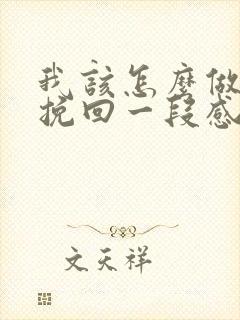 我該怎麼做
挽回一段感
文天祥